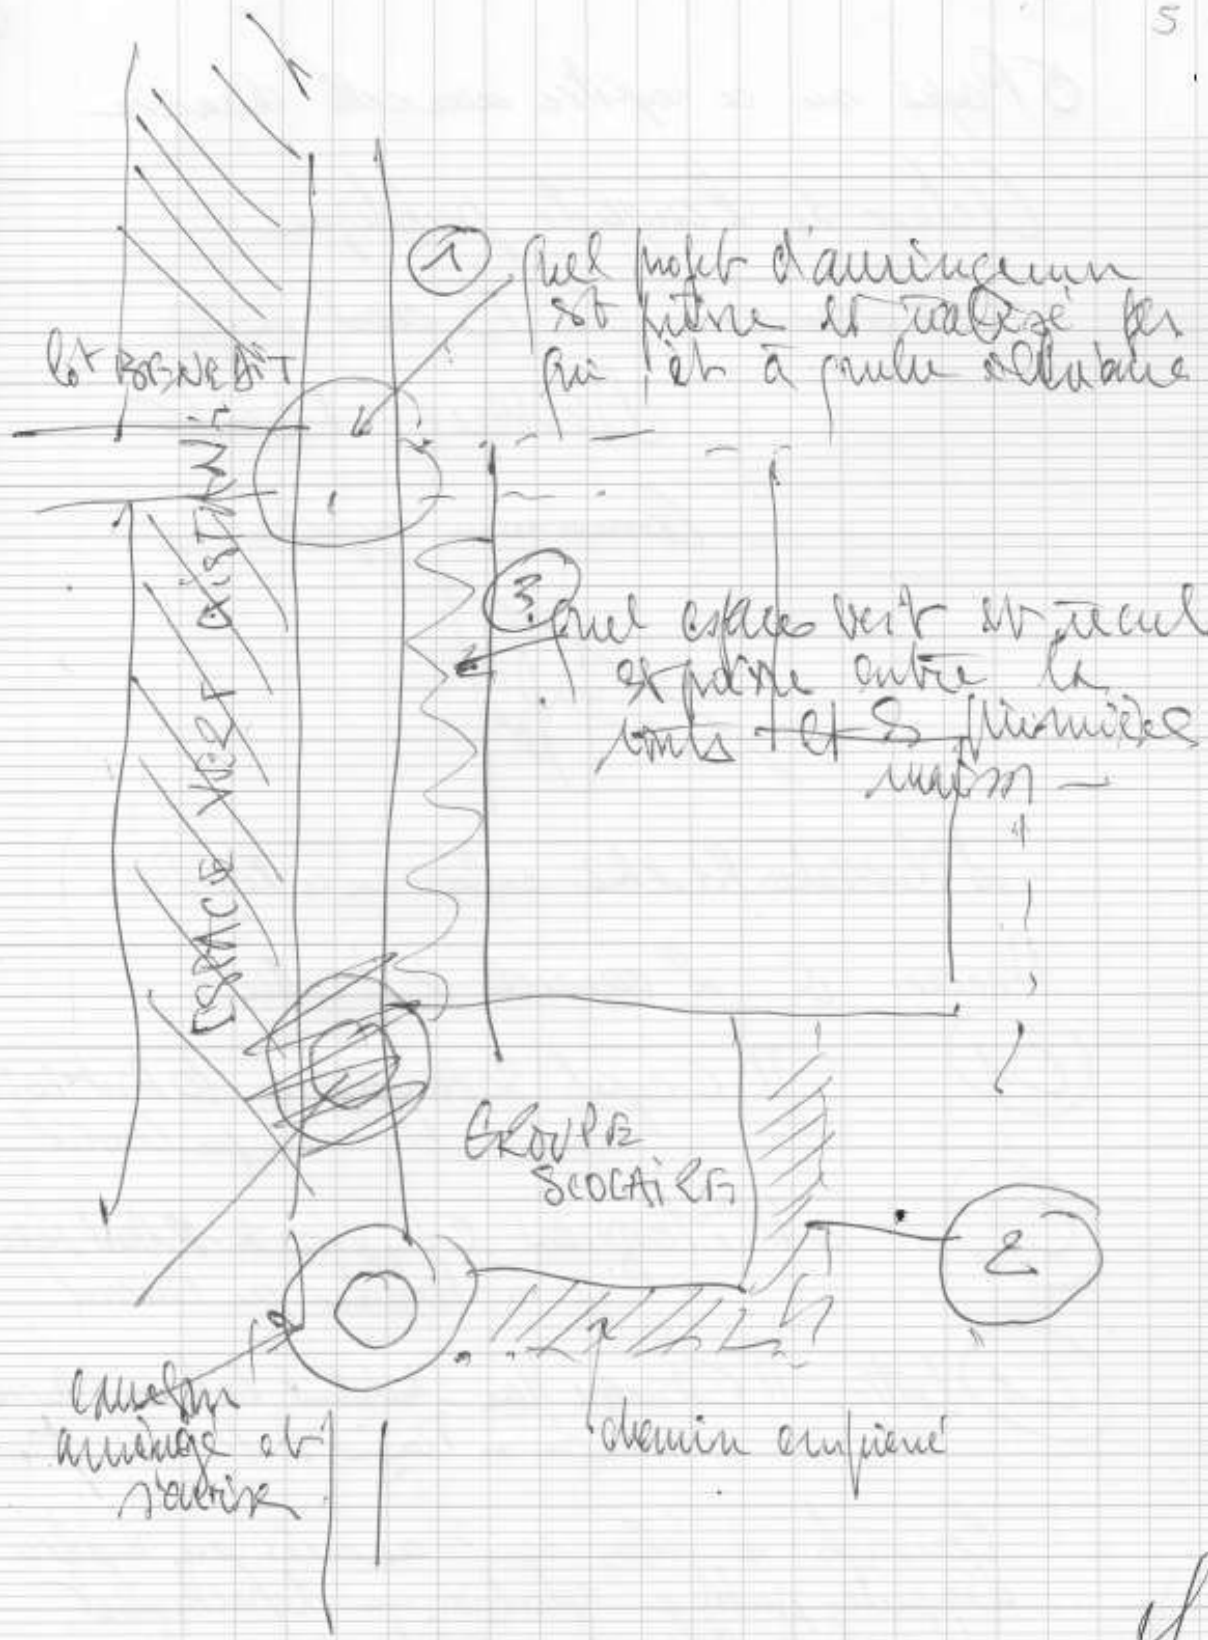 5
1
quel projet d'aménagemen
est prévu et réalisé par
qui, et à quelle
lot
ESPACE VERT EXISTANT
3
quel espace vert et recul
entre la
et la première
maison
GROUPE
SCOLAIRE
2
carrefour
aménagé et
chemin empierré